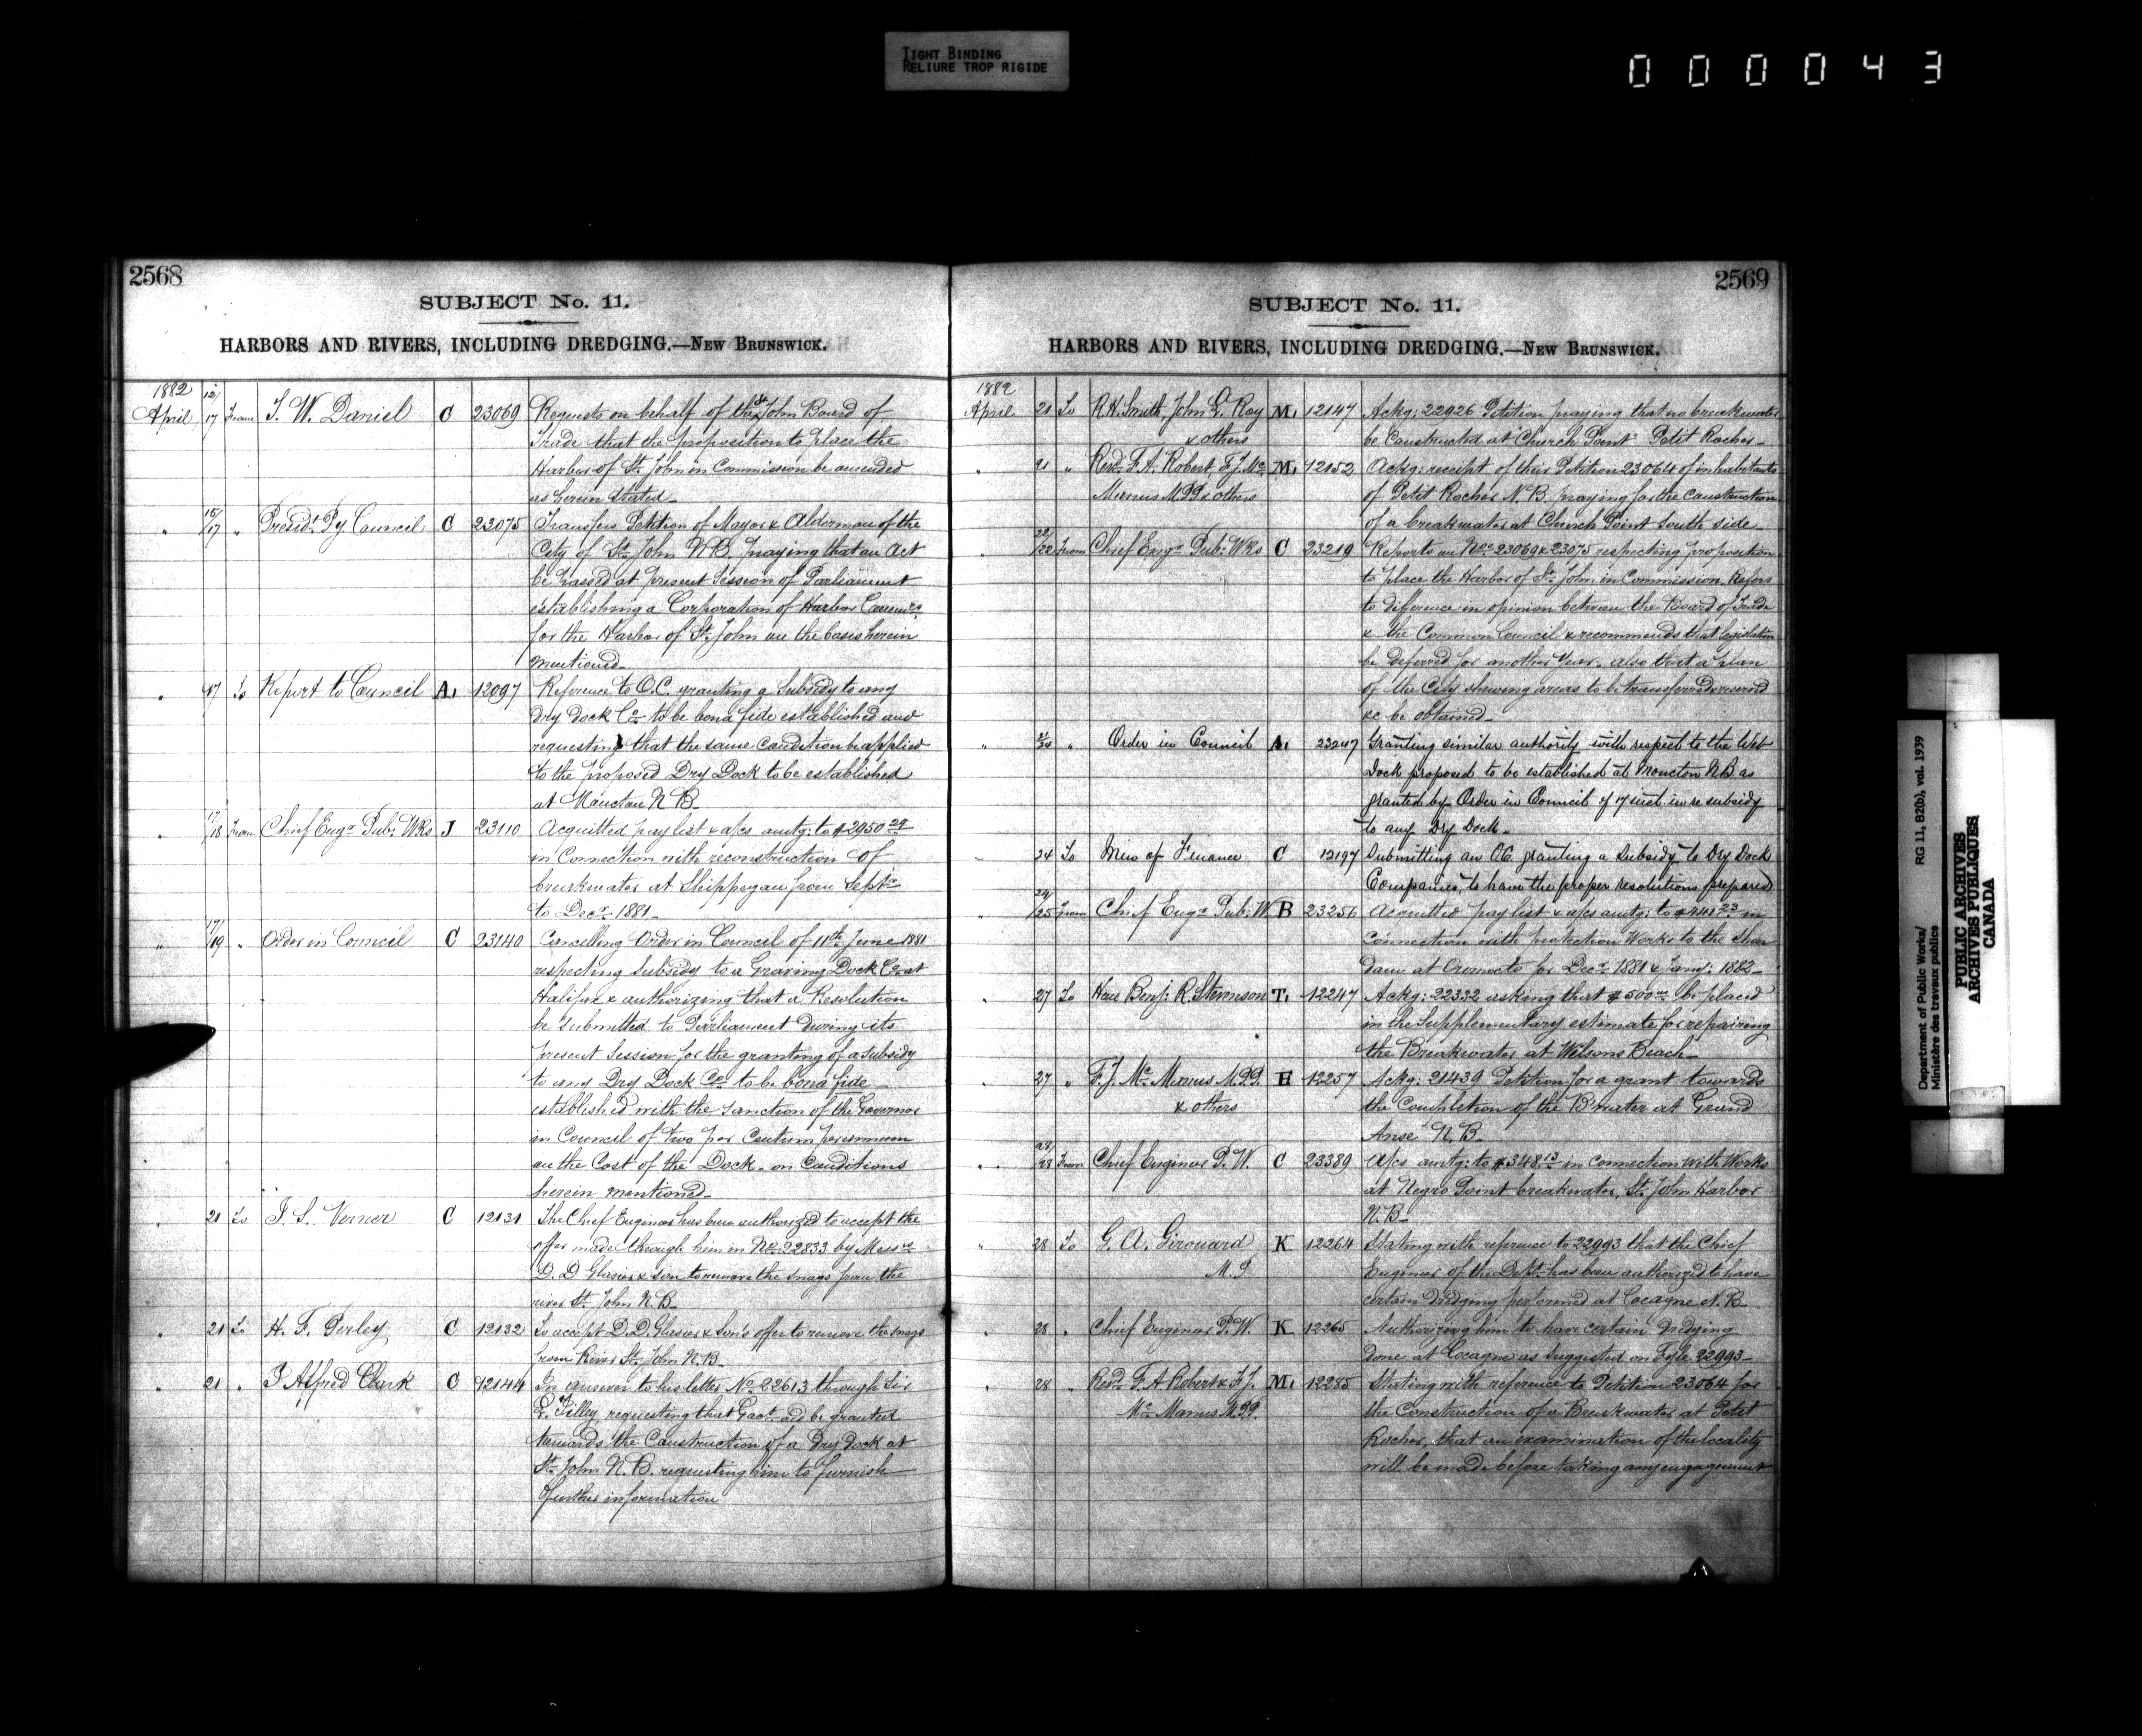 TIGHT BINDING
RELIURE TROP RIGIDE
000043
2568
SUBJECT No. 11.
HARBORS AND RIVERS, INCLUDING DREDGING.—NEW BRUNSWICK.
1882
April 12/17 From T. W. Daniel C 23069 Requests on behalf of the St. John Board of
Trade that the proposition to place the
Harbor of St. John in Commission be amended
as herein stated
" 15/17 " Presidt. Py Council C 23075 Transfers Petition of Mayor & Alderman of the
City of St. John N.B. praying that an Act
be passed at present Session of Parliament
establishing a Corporation of Harbor Commrs.
for the Harbor of St. John on the basis herein
mentioned
" 17 To Report to Council A. 12097 Reference to O.C. granting a Subsidy to any
Dry Dock Co. to be bona fide established and
requesting that the same condition be applied
to the proposed Dry Dock to be established
at Moncton N.B.
" 17/18 From Chief Engr. Pub: Wks J 23110 Acquitted pay list & a/cs amtg: to $2950 29
in Connection with reconstruction of
breakwater at Shippegan from Septr.
to Decr. 1881
" 17/19 " Order in Council C 23140 Cancelling Order in Council of 11th June 1881
respecting Subsidy to a Graving Dock Co. at
Halifax & authorizing that a Resolution
be submitted to Parliament During its
present Session for the granting of a subsidy
to any Dry Dock Co. to be bona fide
established with the sanction of the Governor
in Council of two per Centum per annum
on the Cost of the Dock. on Conditions
herein mentioned
" 21 To T. S. Verner C 12131 The Chief Engineer has been authorized to accept the
offer made through him in No. 22833 by Messrs.
D. D Glasier & Son to remove the snags from the
river St. John N.B.
" 21 To H. F. Perley C 12132 To accept D.D. Glasier & Son's offer to remove the snags
from River St. John N.B.
" 21 " J Alfred Clark C 12144 In answer to his letter No. 22613 through Sir
L. Tilley, requesting that Govt. aid be granted
towards the Construction of a Dry Dock at
St. John N.B. requesting him to furnish
further information
2569
SUBJECT No. 11.
HARBORS AND RIVERS, INCLUDING DREDGING.—NEW BRUNSWICK.
1882
April 21 To R.H. Smith, John L. Roy M. 12147 Ackg: 22926 Petition praying that no breakwater
& others be Constructed at "Church Point" Petit Rocher
" 21 " Revd. F. A. Robert, F. J. Mc M. 12152 Ackg: receipt of their Petition 23064 of inhabitants
Manus M.PP & others of Petit Rocher N.B. praying for the construction
of a breakwater at Church Point South side
" 22/22 From Chief Engr. Pub: Wks C 23219 Reports on Nos. 23069 & 23075 respecting proposition
to place the Harbor of St. John in Commission. Refers
to difference in opinion between the Board of Trade
& the Common Council & recommends that legislation
be deferred for another Year. also that a plan
of the City shewing areas to be transferred & reserved
&c be obtained
" 21/24 " Order in Council A. 23247 Granting similar authority with respect to the Wet
Dock proposed to be established at Moncton N.B as
granted by Order in Council of 17 inst. in re subsidy
to any Dry Dock.
" 24 To Min of Finance C 12197 Submitting an O.C. granting a Subsidy to Dry Dock
Companies, to have the proper resolutions prepared
" 24/25 From Chief Engr. Pub: W. B 23256 Acquitted pay list & a/cs amtg: to $441 23 in
connection with protection Works to the Shear
dam at Oromocto for Decr. 1881 & Jany: 1882
" 27 To Hon Benj: R. Stevenson T. 12247 Ackg: 22332 asking that $500 00 be placed
in the Supplementary estimate for repairing
the Breakwater at Wilsons Beach
" 27 " F. J. Mc. Manus M.PP. H 12257 Ackg: 21439 Petition for a grant towards
& others the Completion of the B'water at Grand
Anse N.B.
" 28/28 From Chief Engineer P. W. C 23389 A/cs amtg: to $348 13 in connection with Works
at Negro Point breakwater, St. John Harbor
N.B.
" 28 To G. A. Girouard K 12264 Stating with reference to 22993 that the Chief
M.P Engineer of the Dept. has been authorized to have
certain dredging performed at Cocagne N.B.
" 28 " Chief Engineer P. W. K 12265 Authorizing him to have certain Dredging
done at Cocagne as suggested on File 22993
" 28 " Revd. F. A Robert & F. J. M. 12285 Stating with reference to Petition 23064 for
Mc. Manus M.PP. the Construction of a Breakwater at Petit
Rocher, that an examination of the locality
will be made before taking any engagement
Department of Public Works/
Ministère des travaux publics
RG 11, B2(b), vol. 1939
PUBLIC ARCHIVES
ARCHIVES PUBLIQUES
CANADA